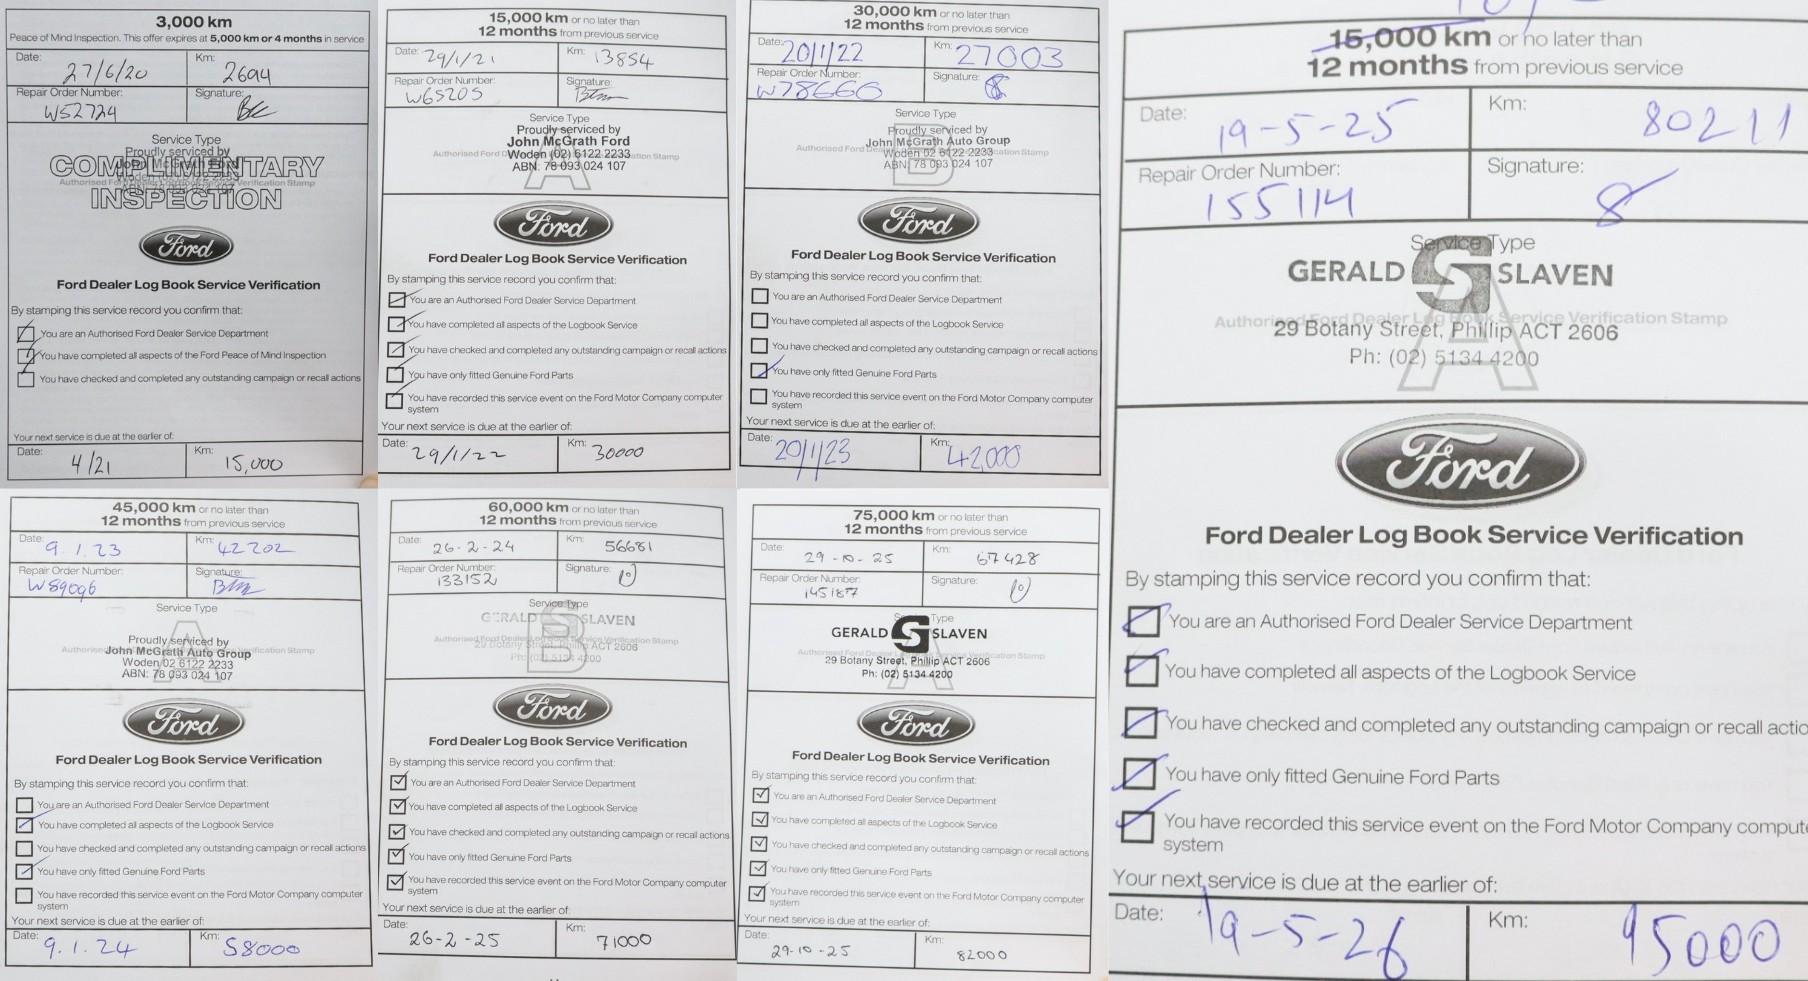 3,000 km
Peace of Mind Inspection. This offer expires at 5,000 km or 4 months in service
Date: 27/6/20 Km: 2694
Repair Order Number: W52724 Signature:
Service Type
Proudly serviced by
COMPLIMENTARY
INSPECTION
Ford
Ford Dealer Log Book Service Verification
By stamping this service record you confirm that:
You are an Authorised Ford Dealer Service Department
You have completed all aspects of the Ford Peace of Mind Inspection
You have checked and completed any outstanding campaign or recall actions
Your next service is due at the earlier of:
Date: 4/21 Km: 15,000
15,000 km or no later than
12 months from previous service
Date: 29/1/21 Km: 13854
Repair Order Number: W65205 Signature:
Service Type
Proudly serviced by
John McGrath Ford
Woden (02) 6122 2233
ABN: 78 093 024 107
A
Ford
Ford Dealer Log Book Service Verification
By stamping this service record you confirm that:
You are an Authorised Ford Dealer Service Department
You have completed all aspects of the Logbook Service
You have checked and completed any outstanding campaign or recall actions
You have only fitted Genuine Ford Parts
You have recorded this service event on the Ford Motor Company computer
system
Your next service is due at the earlier of:
Date: 29/1/22 Km: 30000
30,000 km or no later than
12 months from previous service
Date: 20/1/22 Km: 27003
Repair Order Number: W78666 Signature:
Service Type
Proudly serviced by
John McGrath Auto Group
Woden 02 6122 2233
ABN: 78 093 024 107
B
Ford
Ford Dealer Log Book Service Verification
By stamping this service record you confirm that:
You are an Authorised Ford Dealer Service Department
You have completed all aspects of the Logbook Service
You have checked and completed any outstanding campaign or recall actions
You have only fitted Genuine Ford Parts
You have recorded this service event on the Ford Motor Company computer
system
Your next service is due at the earlier of:
Date: 20/1/23 Km: 42000
45,000 km or no later than
12 months from previous service
Date: 9.1.23 Km: 42202
Repair Order Number: W89096 Signature:
Service Type
Proudly serviced by
John McGrath Auto Group
Woden 02 6122 2233
ABN: 78 093 024 107
A
Ford
Ford Dealer Log Book Service Verification
By stamping this service record you confirm that:
You are an Authorised Ford Dealer Service Department
You have completed all aspects of the Logbook Service
You have checked and completed any outstanding campaign or recall actions
You have only fitted Genuine Ford Parts
You have recorded this service event on the Ford Motor Company computer
system
Your next service is due at the earlier of:
Date: 9.1.24 Km: 58000
60,000 km or no later than
12 months from previous service
Date: 26-2-24 Km: 56681
Repair Order Number: 133152 Signature:
Service Type
GERALD S SLAVEN
29 Botany Street, Phillip ACT 2606
Ph: (02) 5134 4200
B
Ford
Ford Dealer Log Book Service Verification
By stamping this service record you confirm that:
You are an Authorised Ford Dealer Service Department
You have completed all aspects of the Logbook Service
You have checked and completed any outstanding campaign or recall actions
You have only fitted Genuine Ford Parts
You have recorded this service event on the Ford Motor Company computer
system
Your next service is due at the earlier of:
Date: 26-2-25 Km: 71000
75,000 km or no later than
12 months from previous service
Date: 29-10-25 Km: 67428
Repair Order Number: 145187 Signature:
Service Type
GERALD S SLAVEN
29 Botany Street, Phillip ACT 2606
Ph: (02) 5134 4200
A
Ford
Ford Dealer Log Book Service Verification
By stamping this service record you confirm that:
You are an Authorised Ford Dealer Service Department
You have completed all aspects of the Logbook Service
You have checked and completed any outstanding campaign or recall actions
You have only fitted Genuine Ford Parts
You have recorded this service event on the Ford Motor Company computer
system
Your next service is due at the earlier of:
Date: 29-10-25 Km: 82000
15,000 km or no later than
12 months from previous service
Date: 19-5-25 Km: 80211
Repair Order Number: 155114 Signature:
Service Type
GERALD S SLAVEN
Authorised Ford Dealer Log Book Service Verification Stamp
29 Botany Street, Phillip ACT 2606
Ph: (02) 5134 4200
A
Ford
Ford Dealer Log Book Service Verification
By stamping this service record you confirm that:
You are an Authorised Ford Dealer Service Department
You have completed all aspects of the Logbook Service
You have checked and completed any outstanding campaign or recall actio
You have only fitted Genuine Ford Parts
You have recorded this service event on the Ford Motor Company compute
system
Your next service is due at the earlier of:
Date: 19-5-26 Km: 95000